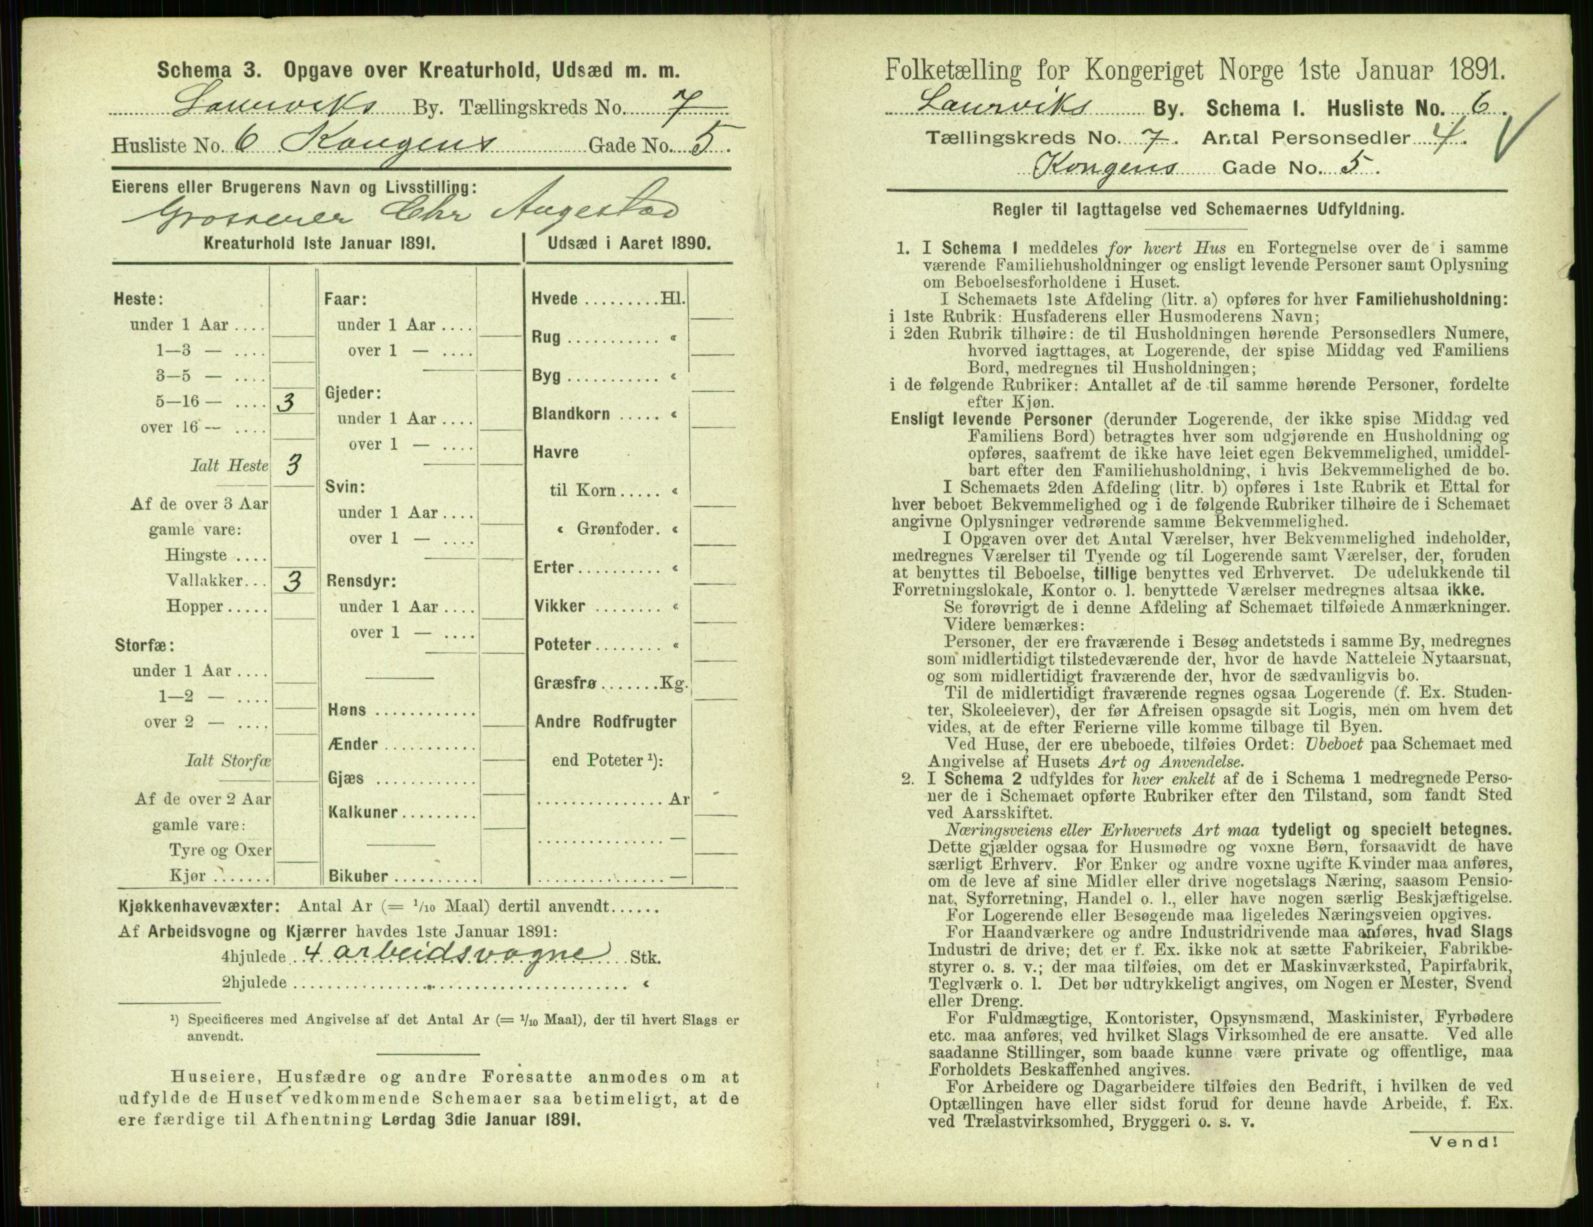 Schema 3. Opgave over Kreaturhold, Udsæd m. m.
Laurviks By. Tællingskreds No. 7
Husliste No. 6 Kongens Gade No. 5.
Eierens eller Brugerens Navn og Livsstilling:
Grosserer Chr Augestad
Kreaturhold 1ste Januar 1891.
Heste:
under 1 Aar ....
1—3 — ....
3—5 — ....
5—16 — .... 3
over 16 — ....
Ialt Heste 3
Af de over 3 Aar
gamle vare:
Hingste ....
Vallakker... 3
Hopper .....
Storfæ:
under 1 Aar ....
1—2 — ....
over 2 — ....
Ialt Storfæ
Af de over 2 Aar
gamle vare:
Tyre og Oxer
Kjør .......
Faar:
under 1 Aar ....
over 1 — ....
Gjeder:
under 1 Aar ....
over 1 — ....
Svin:
under 1 Aar ....
over 1 — ....
Rensdyr:
under 1 Aar ....
over 1 — ....
Høns ............
Ænder ...........
Gjæs ............
Kalkuner.........
Bikuber ..........
Udsæd i Aaret 1890.
Hvede .........Hl.
Rug ........... «
Byg ........... «
Blandkorn ..... «
Havre
til Korn..... «
« Grønfoder. «
Erter.......... «
Vikker ........ «
Poteter........ «
Græsfrø.......Kg.
Andre Rodfrugter
end Poteter ¹):
................ Ar
................ —
................ —
Kjøkkenhavevæxter: Antal Ar (= 1/10 Maal) dertil anvendt......
Af Arbeidsvogne og Kjærrer havdes 1ste Januar 1891:
4hjulede 4 arbeidsvogne Stk.
2hjulede ........................................ «
¹) Specificeres med Angivelse af det Antal Ar (= 1/10 Maal), der til hvert Slags er
anvendt.
Huseiere, Husfædre og andre Foresatte anmodes om at
udfylde de Huset vedkommende Schemaer saa betimeligt, at de
ere færdige til Afhentning Lørdag 3die Januar 1891.
Folketælling for Kongeriget Norge 1ste Januar 1891.
Laurviks By. Schema I. Husliste No. 6.
Tællingskreds No. 7. Antal Personsedler 4.
Kongens Gade No. 5.
Regler til Iagttagelse ved Schemaernes Udfyldning.
1. I Schema 1 meddeles for hvert Hus en Fortegnelse over de i samme
værende Familiehusholdninger og ensligt levende Personer samt Oplysning
om Beboelsesforholdene i Huset.
I Schemaets 1ste Afdeling (litr. a) opføres for hver Familiehusholdning:
i 1ste Rubrik: Husfaderens eller Husmoderens Navn;
i 2den Rubrik tilhøire: de til Husholdningen hørende Personsedlers Numere,
hvorved iagttages, at Logerende, der spise Middag ved Familiens
Bord, medregnes til Husholdningen;
i de følgende Rubriker: Antallet af de til samme hørende Personer, fordelte
efter Kjøn.
Ensligt levende Personer (derunder Logerende, der ikke spise Middag ved
Familiens Bord) betragtes hver som udgjørende en Husholdning og
opføres, saafremt de ikke have leiet egen Bekvemmelighed, umiddel-
bart efter den Familiehusholdning, i hvis Bekvemmelighed de bo.
I Schemaets 2den Afdeling (litr. b) opføres i 1ste Rubrik et Ettal for
hver beboet Bekvemmelighed og i de følgende Rubriker tilhøire de i Schemaet
angivne Oplysninger vedrørende samme Bekvemmelighed.
I Opgaven over det Antal Værelser, hver Bekvemmelighed indeholder,
medregnes Værelser til Tyende og til Logerende samt Værelser, der, foruden
at benyttes til Beboelse, tillige benyttes ved Erhvervet. De udelukkende til
Forretningslokale, Kontor o. l. benyttede Værelser medregnes altsaa ikke.
Se forøvrigt de i denne Afdeling af Schemaet tilføiede Anmærkninger.
Videre bemærkes:
Personer, der ere fraværende i Besøg andetsteds i samme By, medregnes
som midlertidigt tilstedeværende der, hvor de havde Natteleie Nytaarsnat,
og som midlertidigt fraværende der, hvor de sædvanligvis bo.
Til de midlertidigt fraværende regnes ogsaa Logerende (f. Ex. Studen-
ter, Skoleelever), der før Afreisen opsagde sit Logis, men om hvem det
vides, at de efter Ferierne ville komme tilbage til Byen.
Ved Huse, der ere ubeboede, tilføies Ordet: Ubeboet paa Schemaet med
Angivelse af Husets Art og Anvendelse.
2. I Schema 2 udfyldes for hver enkelt af de i Schema 1 medregnede Perso-
ner de i Schemaet opførte Rubriker efter den Tilstand, som fandt Sted
ved Aarsskiftet.
Næringsveiens eller Erhvervets Art maa tydeligt og specielt betegnes.
Dette gjælder ogsaa for Husmødre og voxne Børn, forsaavidt de have
særligt Erhverv. For Enker og andre voxne ugifte Kvinder maa anføres,
om de leve af sine Midler eller drive nogetslags Næring, saasom Pensio-
nat, Syforretning, Handel o. l., eller have nogen særlig Beskjæftigelse.
For Logerende eller Besøgende maa ligeledes Næringsveien opgives.
For Haandværkere og andre Industridrivende maa anføres, hvad Slags
Industri de drive; det er f. Ex. ikke nok at sætte Fabrikeier, Fabrikbe-
styrer o. s. v.; der maa tilføies, om det er Maskinværksted, Papirfabrik,
Teglværk o. l. Det bør udtrykkeligt angives, om Nogen er Mester, Svend
eller Dreng.
For Fuldmægtige, Kontorister, Opsynsmænd, Maskinister, Fyrbødere
etc. maa anføres, ved hvilket Slags Virksomhed de ere ansatte. Ved alle
saadanne Stillinger, som baade kunne være private og offentlige, maa
Forholdets Beskaffenhed angives.
For Arbeidere og Dagarbeidere tilføies den Bedrift, i hvilken de ved
Optællingen have eller sidst forud for denne havde Arbeide, f. Ex.
ved Trælastvirksomhed, Bryggeri o. s. v.
Vend!